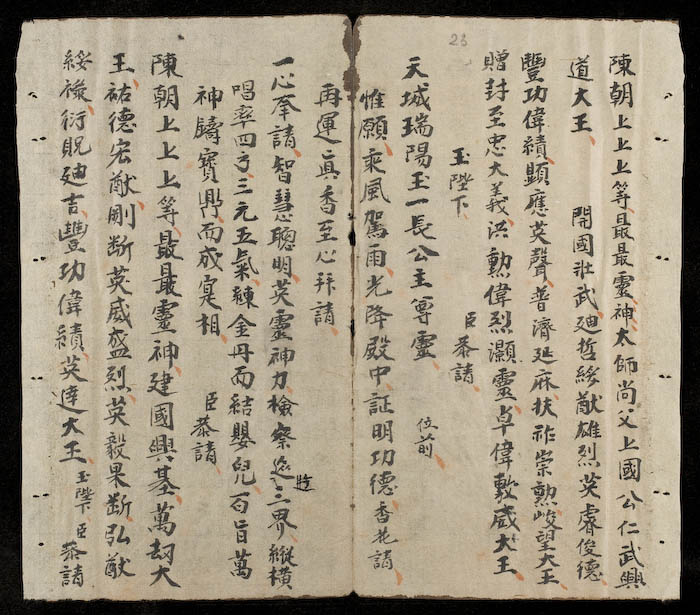 23
陳朝上上上等最最靈神太師尚父上國公仁武興
道大王 開國壯武迪哲綏猷雄烈英睿俊德
豐功偉績顯應英聲普濟延庥扶祚崇勲峻望大王
贈封至忠大義洪勲偉烈灝靈卓偉敷威大王
玉陛下 臣恭請
天城瑞陽玉一長公主尊靈 位前
惟願乘風駕雨光降殿中証明功德香花請
再運真香至心拜請
一心奉請智慧聰明英靈神力檢察三界縱橫
唱率四方三元五氣鍊金丹而結嬰兒百旨萬
神鑄寶鼎而成寔相 臣恭請
陳朝上上上等最最靈神建國興基萬劫大
王祐德宏猷剛斷英威盛烈英毅果斷弘猷
綏祿衍貺迪吉豐功偉績英達大王 玉陛下臣恭請